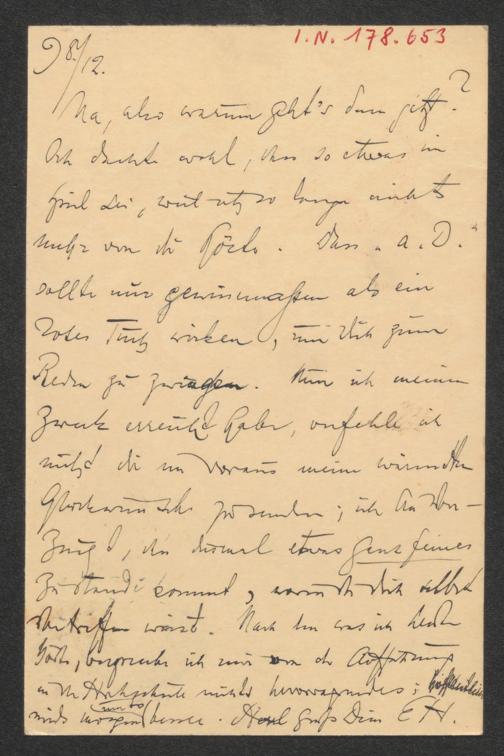 I.N. 178.653
98/12.
Na, also warum geht's denn jetzt?
Ich dachte wohl, dass so etwas im
Spiel sei, weil ich so lange nichts
mehr von dir hörte. Dass "a. D."
sollte nur gewissermaßen als ein
rotes Tuch wirken, um dich zum
Reden zu zwingen. Nun ich meinen
Zweck erreicht habe, verfehle ich
nicht dir im Voraus meine wärmsten
Glückwünsche zu senden; ich bin über-
zeugt, dass diesmal etwas ganz feines
zu stande kommt, womit du dich selbst
übertreffen wirst. Nach dem was ich heute
hörte, verspreche ich mir von der Aufführung
in der Hochschule nichts hervorragendes; hoffentlich
wird's morgen besser. Herzl Gruß Dein E H.